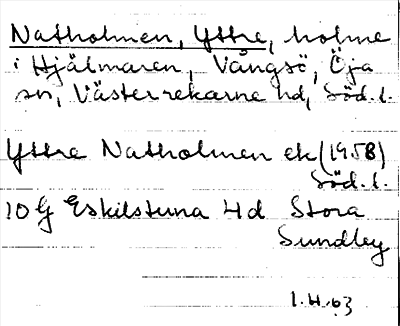 Natholmen, Yttre, holme
i Hjälmaren, Vångsö, Öja
sn, Västerrekarne hd, Söd. l.
Yttre Natholmen ek (1958)
Söd. l.
10 G Eskilstuna 4d Stora
Sundby
1.4.63